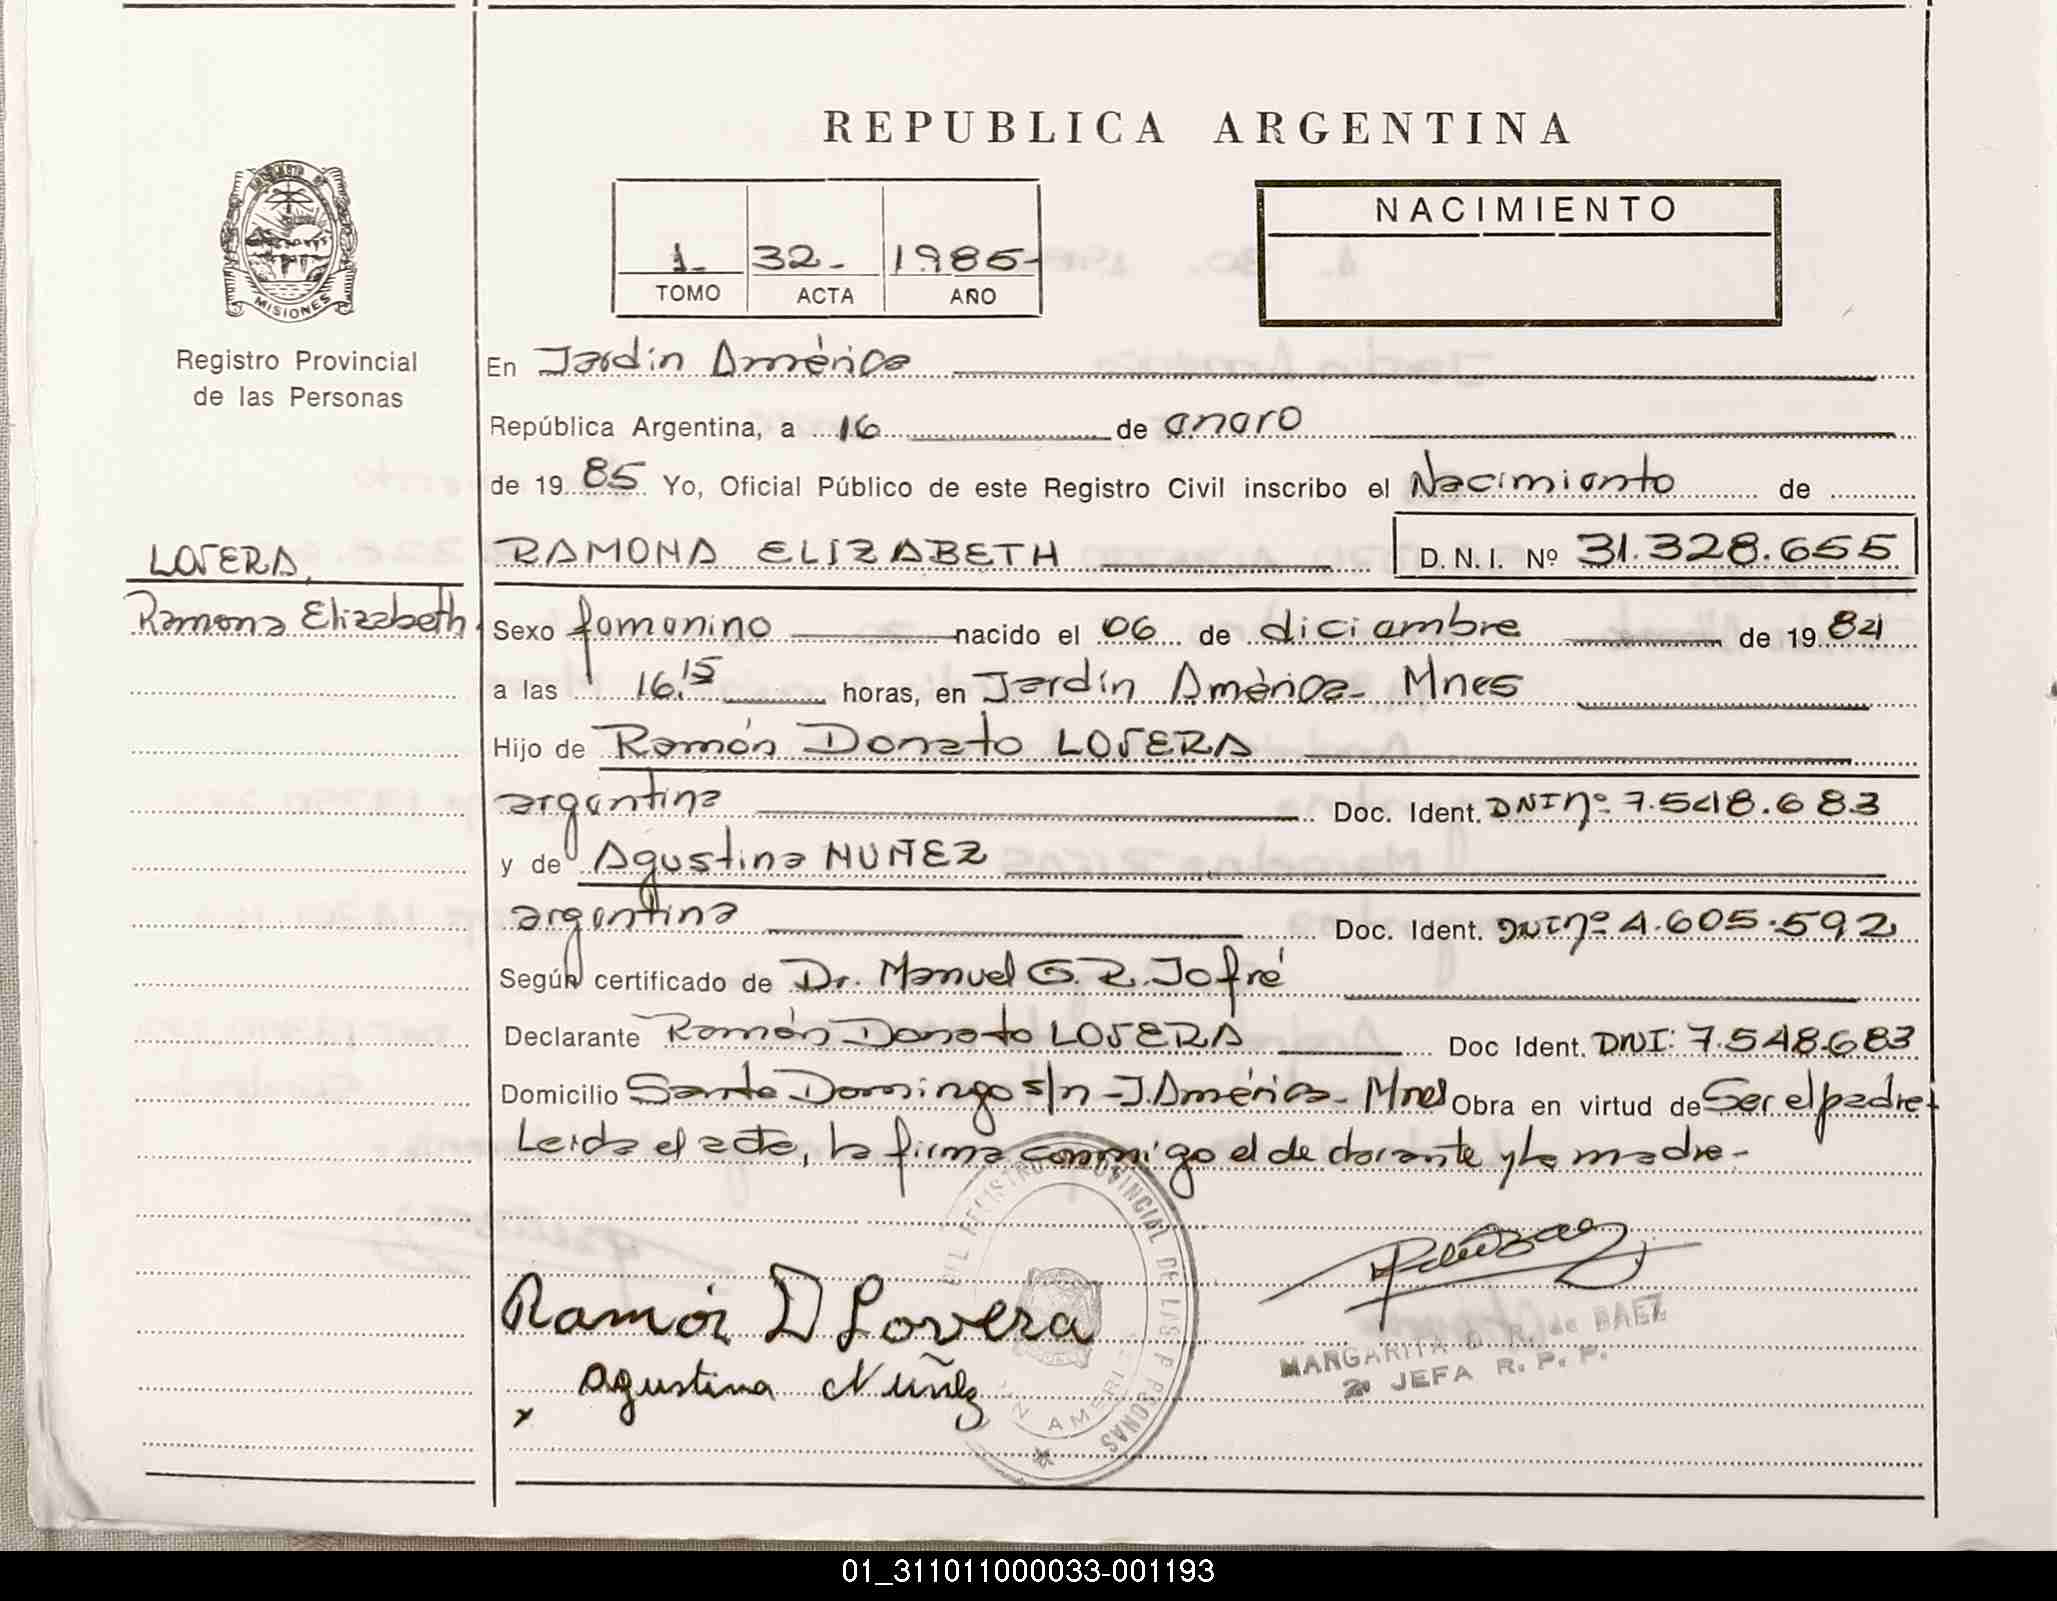 REPUBLICA ARGENTINA
NACIMIENTO
1- 32- 1985-
TOMO ACTA AÑO
MISIONES
Registro Provincial
de las Personas
En Jardín América
República Argentina, a 16 de enero
de 1985 Yo, Oficial Público de este Registro Civil inscribo el Nacimiento de
LOVERA,
RAMONA ELIZABETH D. N. I. Nº 31.328.655
Ramona Elizabeth.
Sexo femenino nacido el 06 de diciembre de 1984
a las 16.15 horas, en Jardín América- Mnes
Hijo de Ramón Donato LOVERA
argentina Doc. Ident. DNI nº 7.548.683
y de Agustina NUÑEZ
argentina Doc. Ident. DNI nº 4.605.592
Según certificado de Dr. Manuel G. R. Jofré
Declarante Ramón Donato LOVERA Doc Ident. DNI: 7.548.683
Domicilio Santo Domingo s/n - J. América- Mnes Obra en virtud de Ser el padre-
Leida el acta, la firma conmigo el declarante y la madre-
REGISTRO PROVINCIAL DE LAS PERSONAS
Ramón D Lovera
Agustina Nuñez
x
MARGARITA D. R. de BAEZ
2a JEFA R. P. P.
01_311011000033-001193